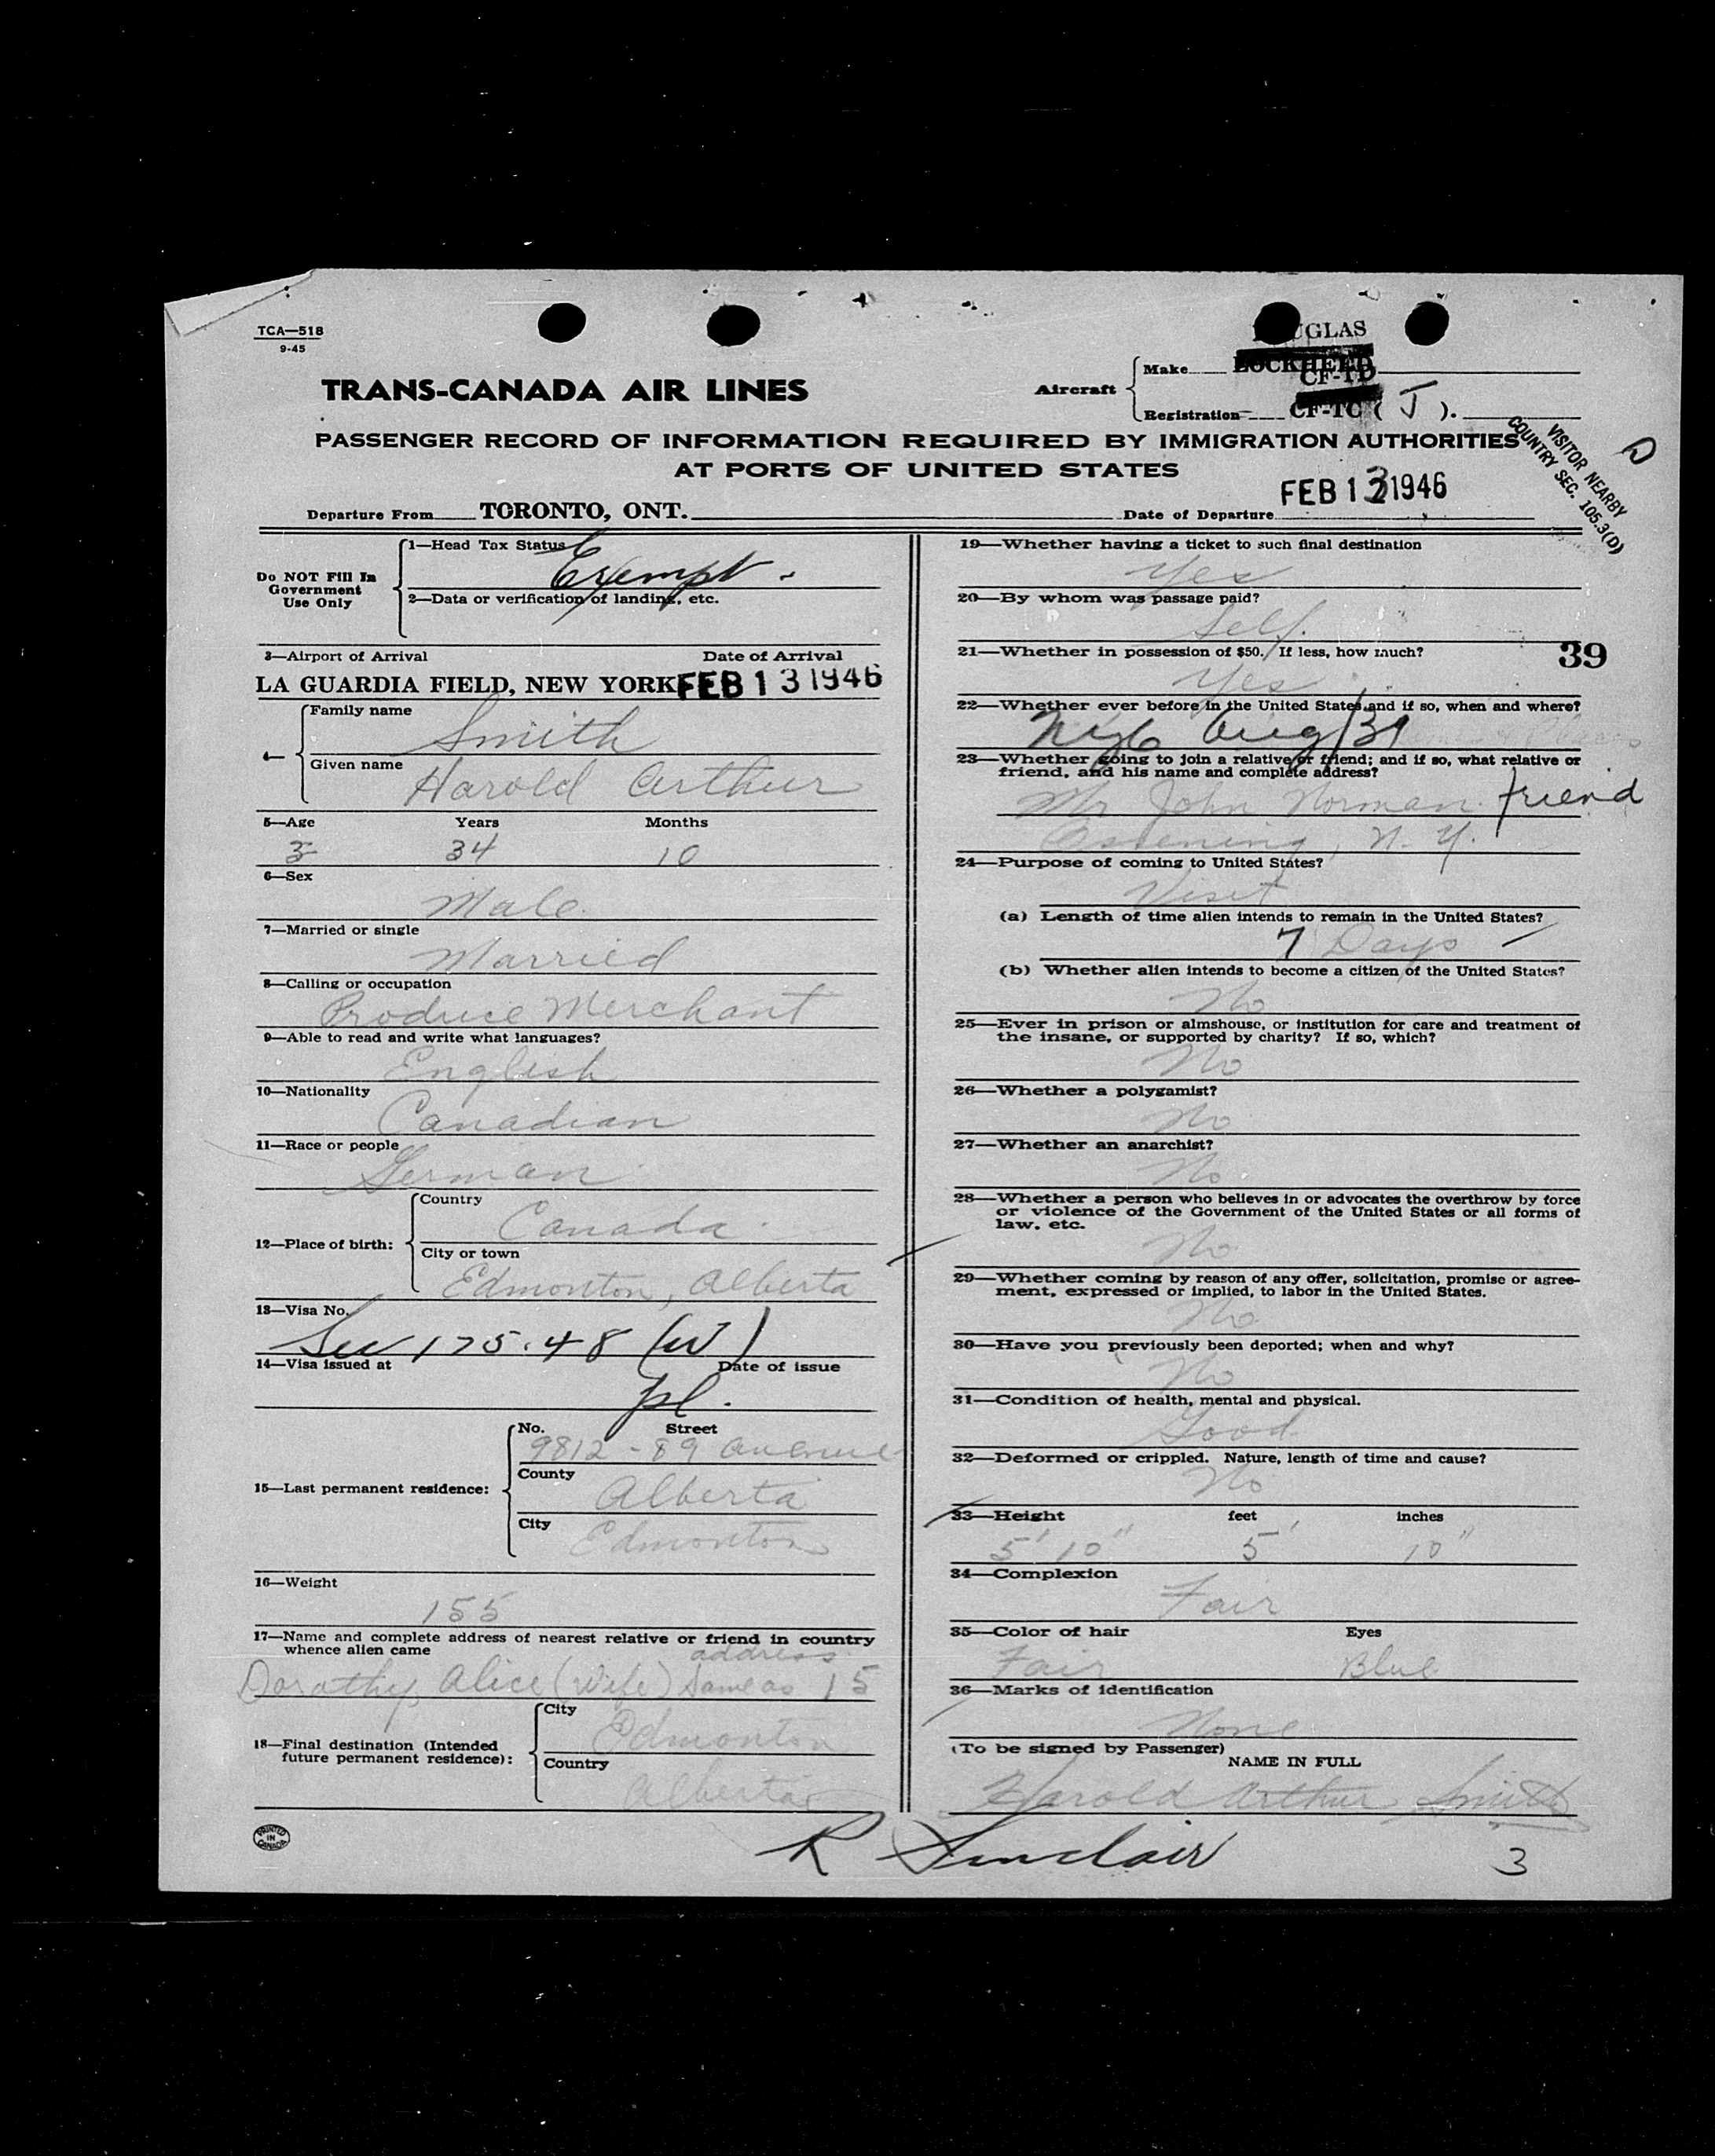 TCA—518
9-45
TRANS-CANADA AIR LINES
UGLAS
Aircraft
Make LOCKHEED
CF-TD
Registration CF-TC ( J ).
PASSENGER RECORD OF INFORMATION REQUIRED BY IMMIGRATION AUTHORITIES
AT PORTS OF UNITED STATES
VISITOR NEARBY
COUNTRY SEC. 105.3(D)
D
Departure From TORONTO, ONT.
Date of Departure FEB 13 1946
Do NOT Fill In
Government
Use Only
1—Head Tax Status
Exempt.
2—Data or verification of landing, etc.
3—Airport of Arrival Date of Arrival
LA GUARDIA FIELD, NEW YORK FEB 13 1946
4—
Family name
Smith
Given name
Harold Arthur
5—Age Years Months
3 34 10
6—Sex
Male
7—Married or single
Married
8—Calling or occupation
Produce Merchant
9—Able to read and write what languages?
English
10—Nationality
Canadian
11—Race or people
German
12—Place of birth:
Country
Canada
City or town
Edmonton, Alberta
13—Visa No.
Sec 175.48 (W)
14—Visa issued at Date of issue
15—Last permanent residence:
No. Street
9812 - 89 Avenue
County
Alberta
City
Edmonton
16—Weight
155
17—Name and complete address of nearest relative or friend in country
whence alien came
address
Dorothy, Alice (Wife) Same as 15
18—Final destination (Intended
future permanent residence):
City
Edmonton
Country
Alberta
PRINTED
IN
CANADA
19—Whether having a ticket to such final destination
Yes
20—By whom was passage paid?
Self.
21—Whether in possession of $50. If less, how much?
39
Yes
22—Whether ever before in the United States and if so, when and where?
NYC Aug/31
23—Whether going to join a relative or friend; and if so, what relative or
friend, and his name and complete address?
Mr John Norman. friend
Ossening, N.Y.
24—Purpose of coming to United States?
Visit
(a) Length of time alien intends to remain in the United States?
7 Days
(b) Whether alien intends to become a citizen of the United States?
No
25—Ever in prison or almshouse, or institution for care and treatment of
the insane, or supported by charity? If so, which?
No
26—Whether a polygamist?
No
27—Whether an anarchist?
No
28—Whether a person who believes in or advocates the overthrow by force
or violence of the Government of the United States or all forms of
law, etc.
No
29—Whether coming by reason of any offer, solicitation, promise or agree-
ment, expressed or implied, to labor in the United States.
No
30—Have you previously been deported; when and why?
No
31—Condition of health, mental and physical.
Good
32—Deformed or crippled. Nature, length of time and cause?
No
33—Height feet inches
5' 10" 5' 10"
34—Complexion
Fair
35—Color of hair Eyes
Fair Blue
36—Marks of identification
None
(To be signed by Passenger)
NAME IN FULL
Harold Arthur Smith
R Sinclair
3